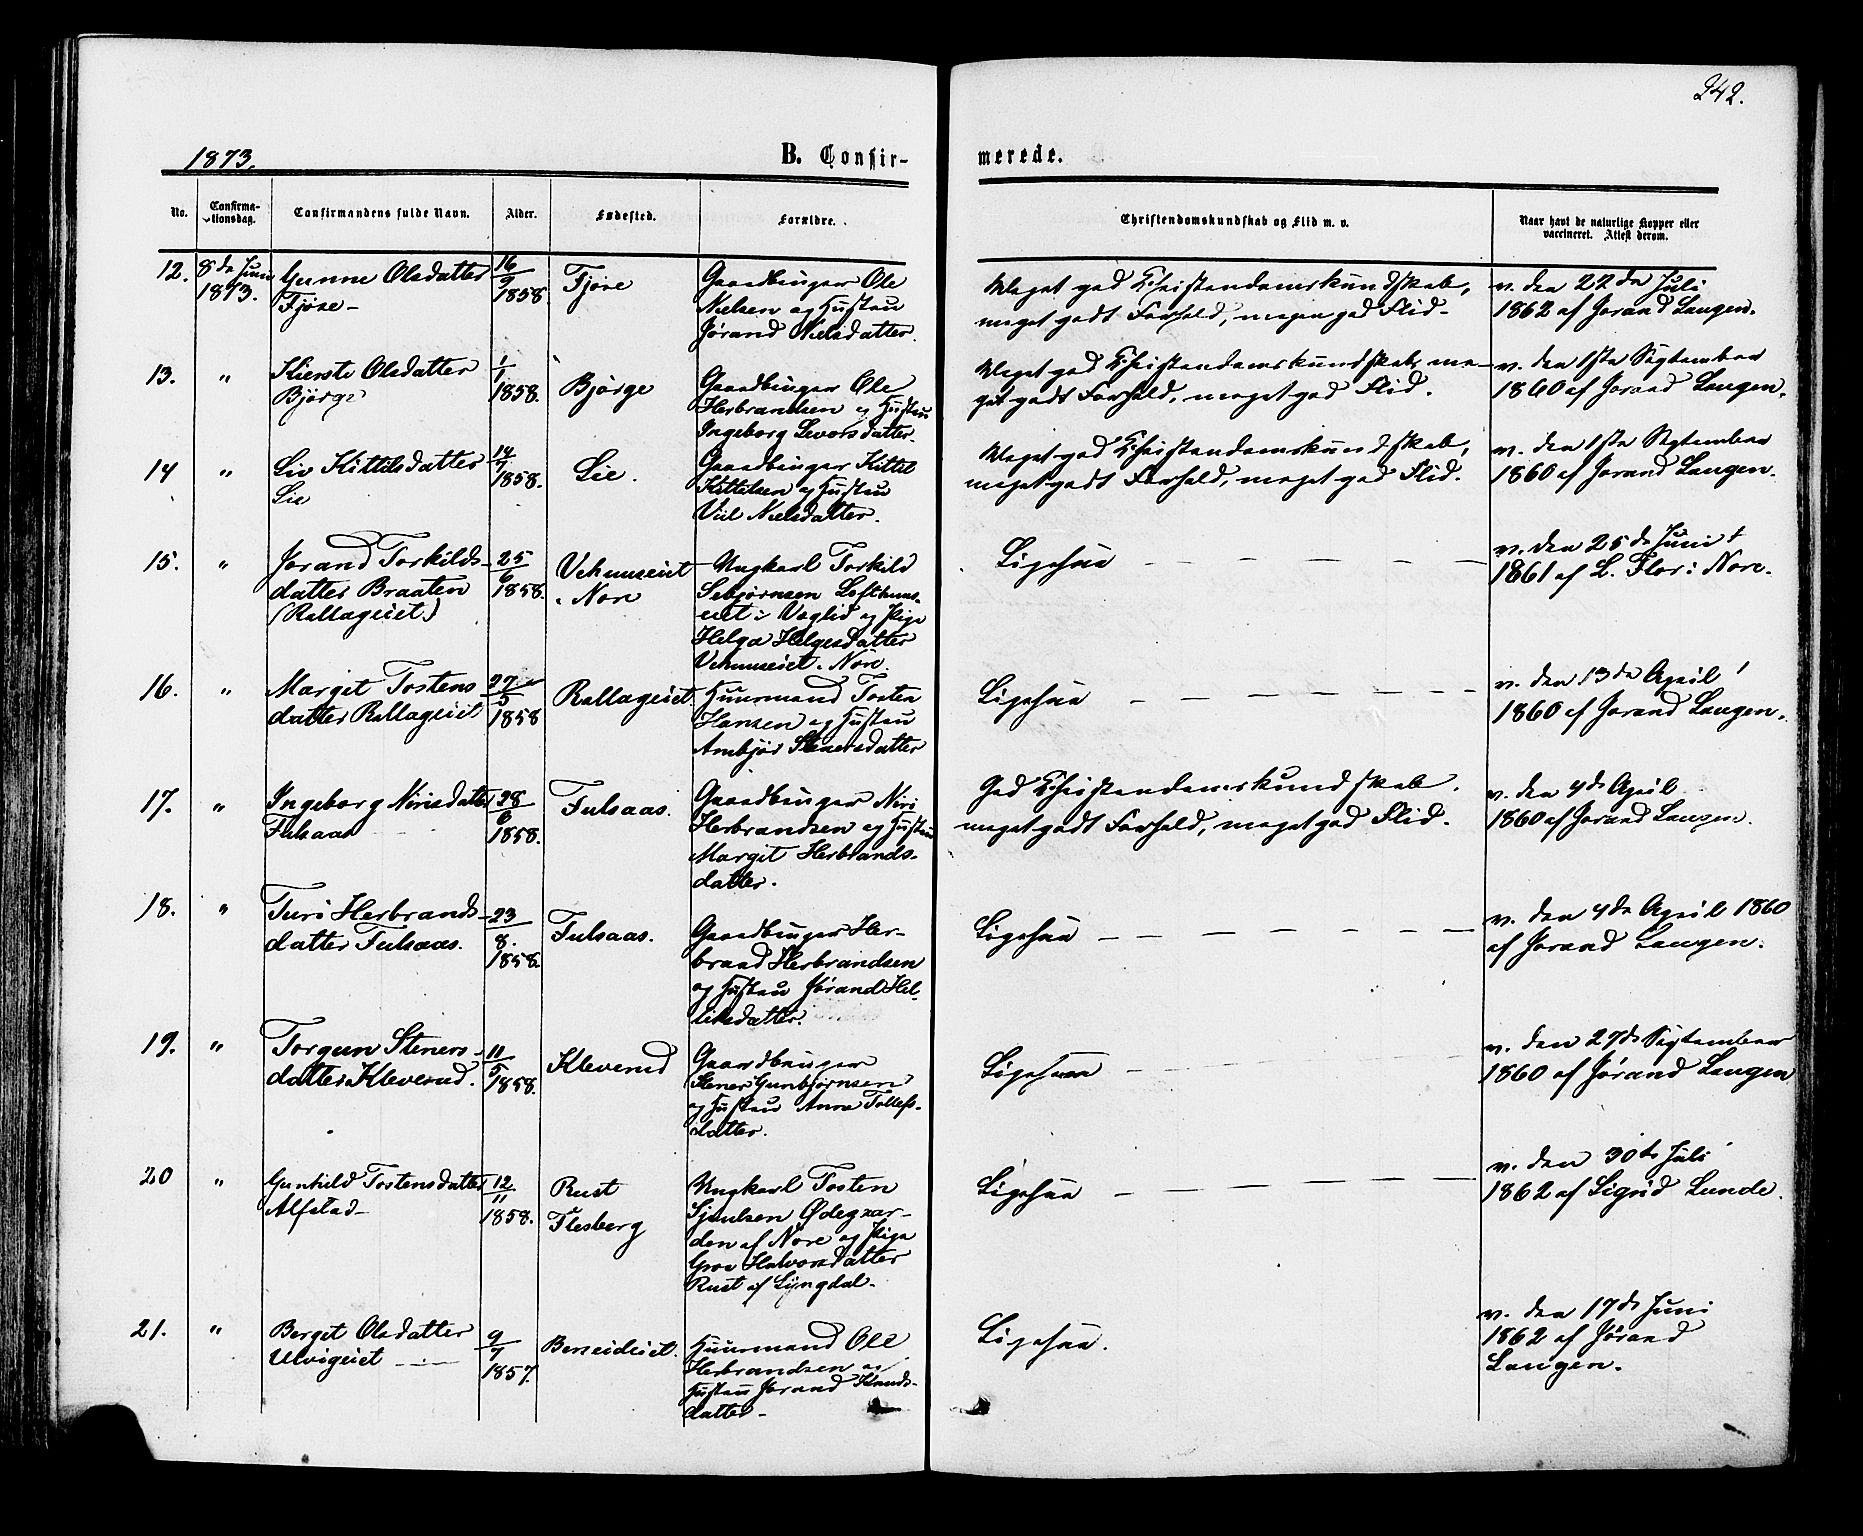 242.
1873.
B. Confir-
merede.
No.
Confirma-
tionsdag.
Confirmandens fulde Navn.
Alder.
Fødested.
Forældre.
Christendomskundskab og Flid m. v.
Naar havt de naturlige Kopper eller
vaccineret. Attest derom.
12.
8de Juni
1873.
Gunne Olsdatter
Fjøse
16/9
1858.
Fjøse
Gaardbruger Ole
Nielsen og Hustru
Jørand Nielsdatter.
Meget god Christendomskundskab,
meget godt Forhold, megen god Flid.
v. den 22de Juli
1862 af Jorand Langen.
13.
"
Kierste Olsdatter
Bjørge
1/1
1858.
Bjørge
Gaardbruger Ole
Herbrandsen og Hustru
Ingeborg Levorsdatter.
Meget god Christendomskundskab, me-
get godt Forhold, meget god Flid.
v. den 1ste September
1860 af Jorand Langen.
14
"
Liv Kittilsdatter
Lie
14/7
1858.
Lie.
Gaardbruger Kittel
Kittelsen og Hustru
Viil Nielsdatter.
Meget god Christendomskundskab,
meget godt Forhold, meget god Flid.
v. den 1ste September
1860 af Jorand Langen.
15.
"
Jorand Torkilds-
datter Braaten
(Rallageiet)
25/6
1858.
i Nore
Ungkarl Torkild
Sebjørnsen
i Veglid og Pige
Helga Helgesdatter
Nore.
Ligesaa
v. den 25de Juni
1861 af L. Flor i Nore.
16.
"
Margit Tostens
datter Rallageiet
27/5
1858
Rallageiet.
Huusmand Tosten
Hansen og Hustru
Ambjør Stenersdatter
Ligesaa
v. den 13de April
1860 af Jorand Langen.
17.
"
Ingeborg Nirisdatter
Fulsaas
28/6
1858.
Fulsaas.
Gaardbruger Niri
Herbrandsen og Hustru
Margit Herbrands-
datter.
God Christendomskundskab.
meget godt Forhold, meget god Flid.
v. den 4de April
1860 af Jorand Langen.
18.
"
Turi Herbrands-
datter Fulsaas.
23/8.
1858.
Fulsaas.
Gaardbruger Her-
brand Herbrandsen
og Hustru Jørand Hel-
liksdatter.
Ligesaa
v. den 4de April 1860
af Jorand Langen.
19.
"
Torgun Steners-
datter Kleverud.
11/5
1858.
Kleverud
Gaardbruger
Stener Gunbjørnsen
og Hustru Anne Tollefs-
datter.
Ligesaa
v. den 27de September
1860 af Jørand Langen
20
"
Gunhild Tostensdatter
Alfstad
12/11
1858.
Rust
Flesberg
Ungkarl Tosten
Sjulsen Ødegaar-
den af Nore og Pige
Groe Halvorsdatter
Rust af Lyngdal.
Ligesaa
v. den 30te Juli
1862 af Sigrid Lunde.
21.
"
Berget Olsdatter
Ulvigeiet
9/7
1857.
Huusmand Ole
Herbrandsen og
Hustru Jorand Knuds-
datter
Ligesaa.
v. den 17de Juni
1862 af Jørand
Langen.